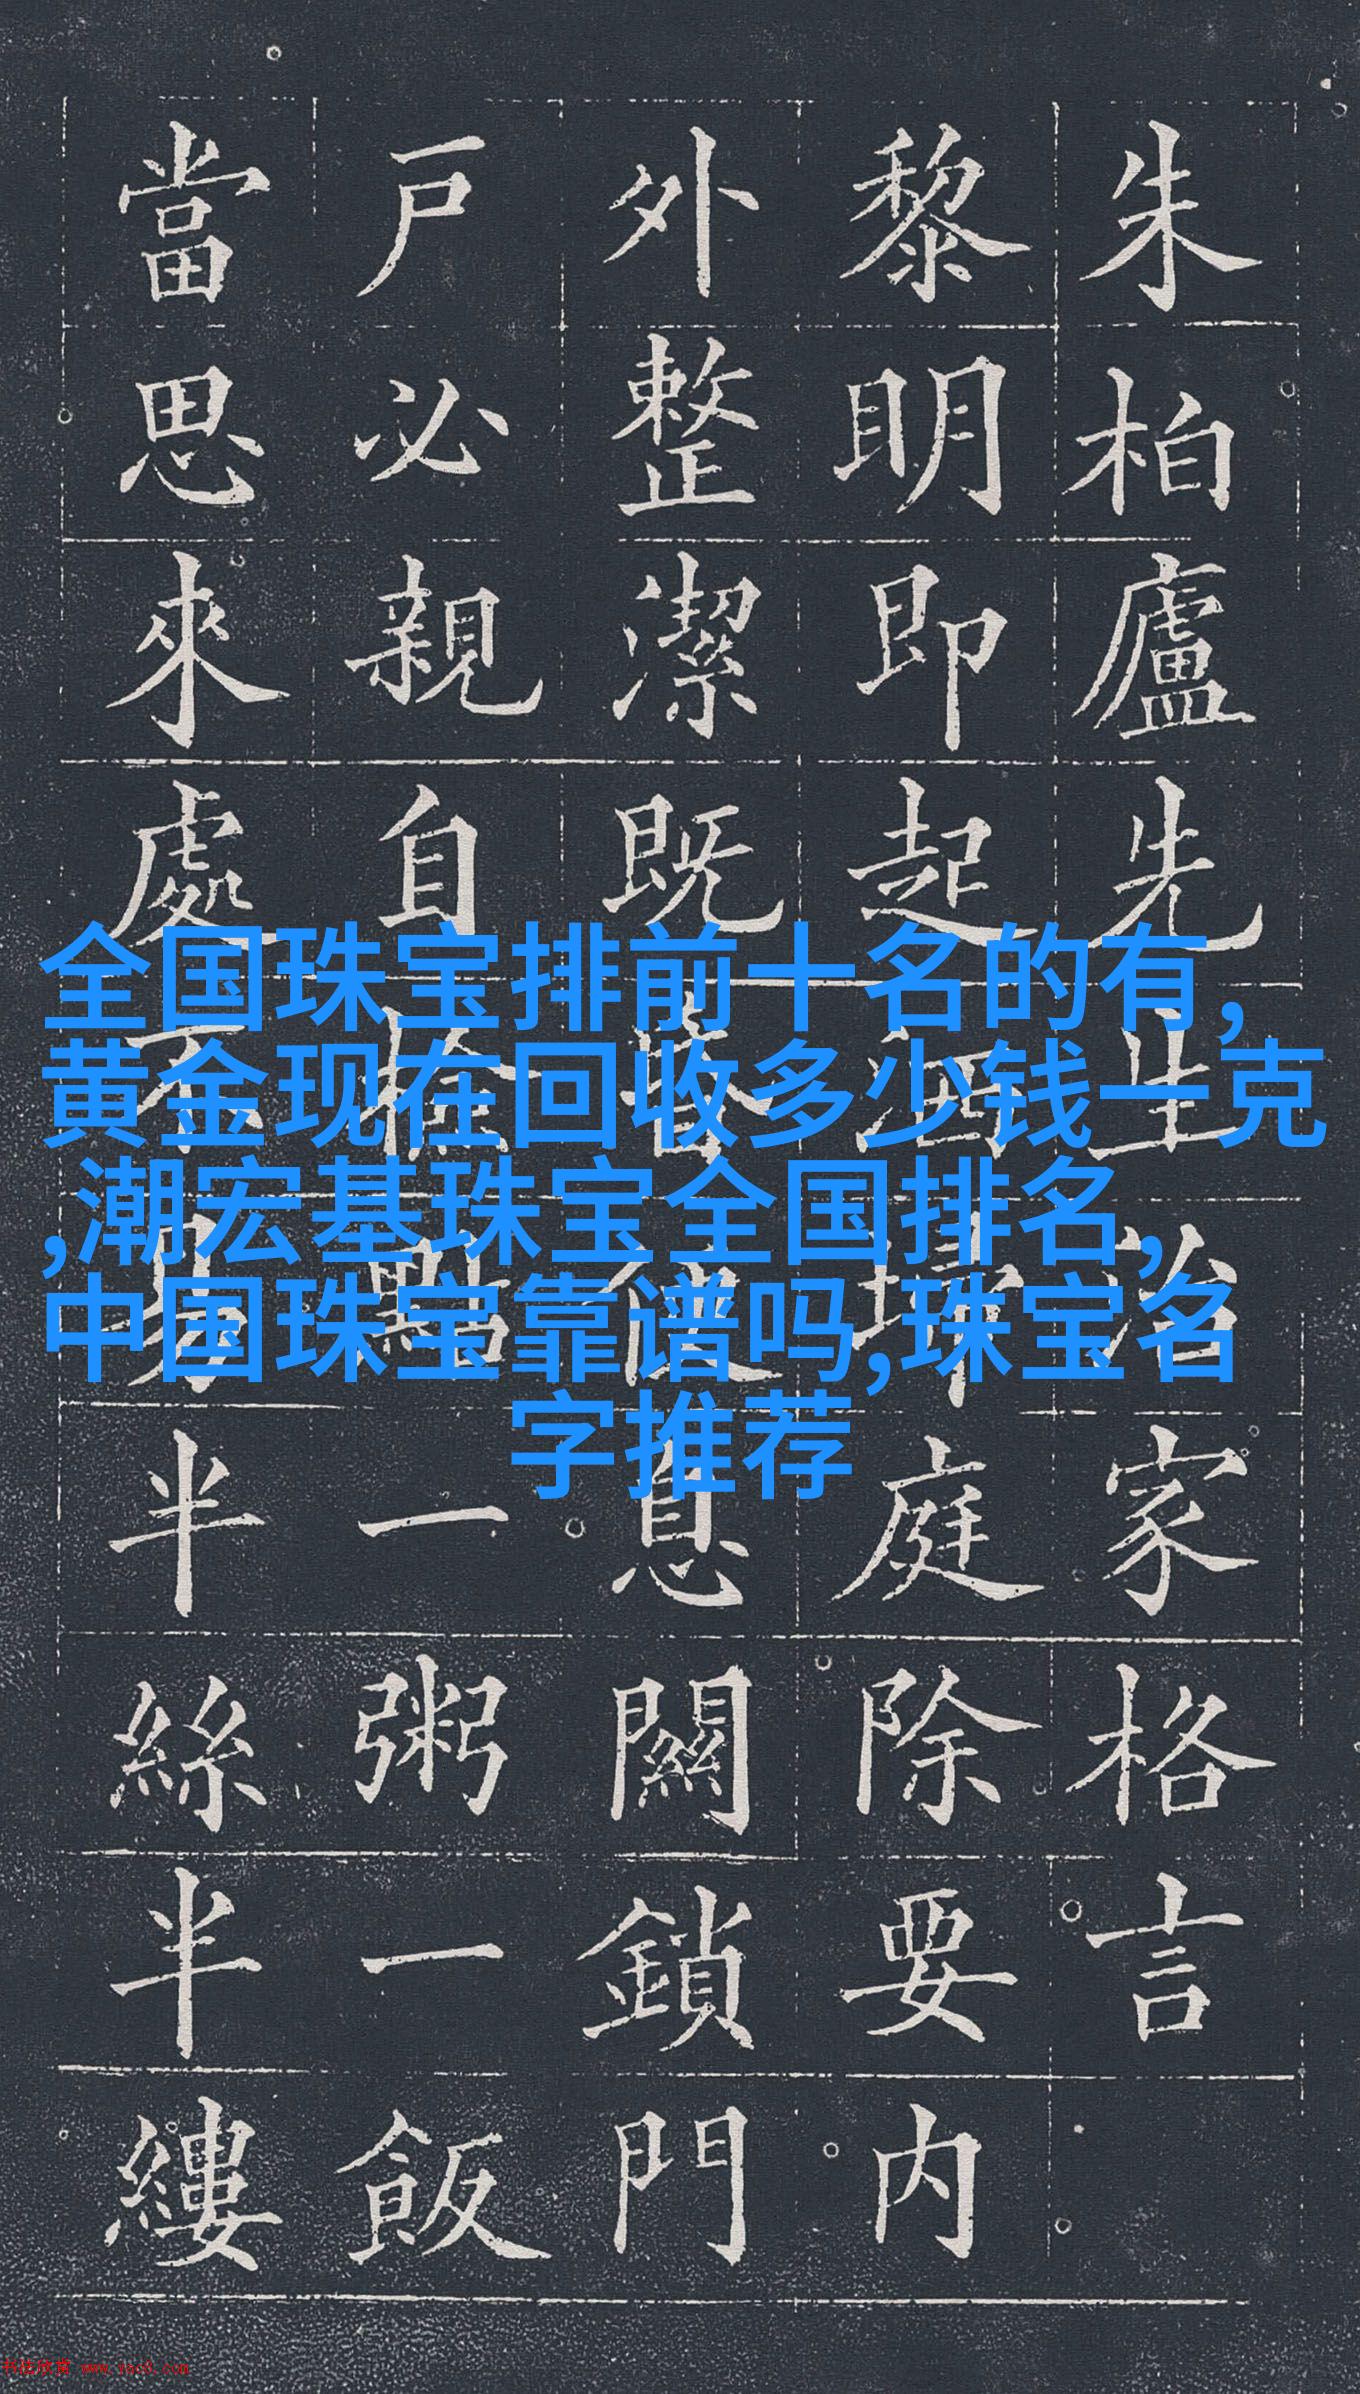 朱柏廬先生治家格言
黎明即起洒埽庭除要内
外整潔既昏便息關鎖門
戶必親自檢點一粥一飯
當思來處不易半絲半縷
全国珠宝排前十名的有,
黄金现在回收多少钱一克
,潮宏基珠宝全国排名,
中国珠宝靠谱吗,珠宝名
字推荐
书法欣赏 www.yac8.com